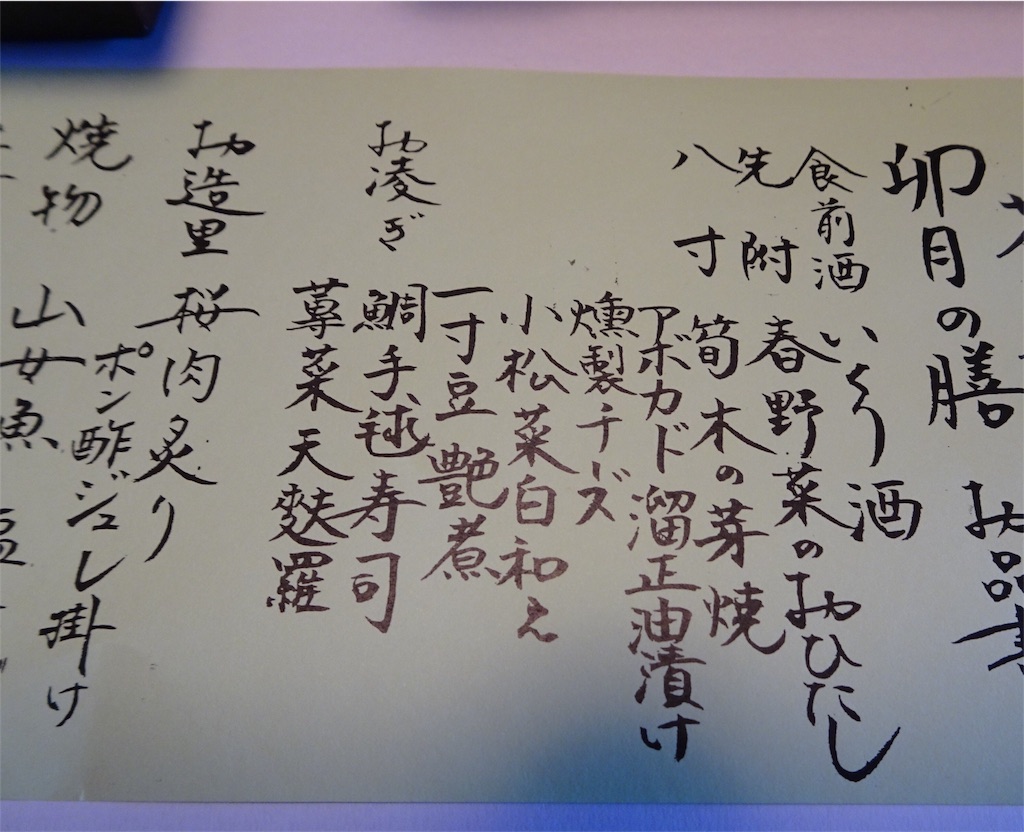 卯月の膳 お品書
食前酒 いくり酒
先附 春野菜のおひたし
八寸 筍木の芽焼
アボカド溜正油漬け
燻製チーズ
小松菜白和え
一寸豆艶煮
お凌ぎ 鯛手毬寿司
蓴菜天麩羅
お造里 桜肉炙り
ポン酢ジュレ掛け
焼物 山女魚